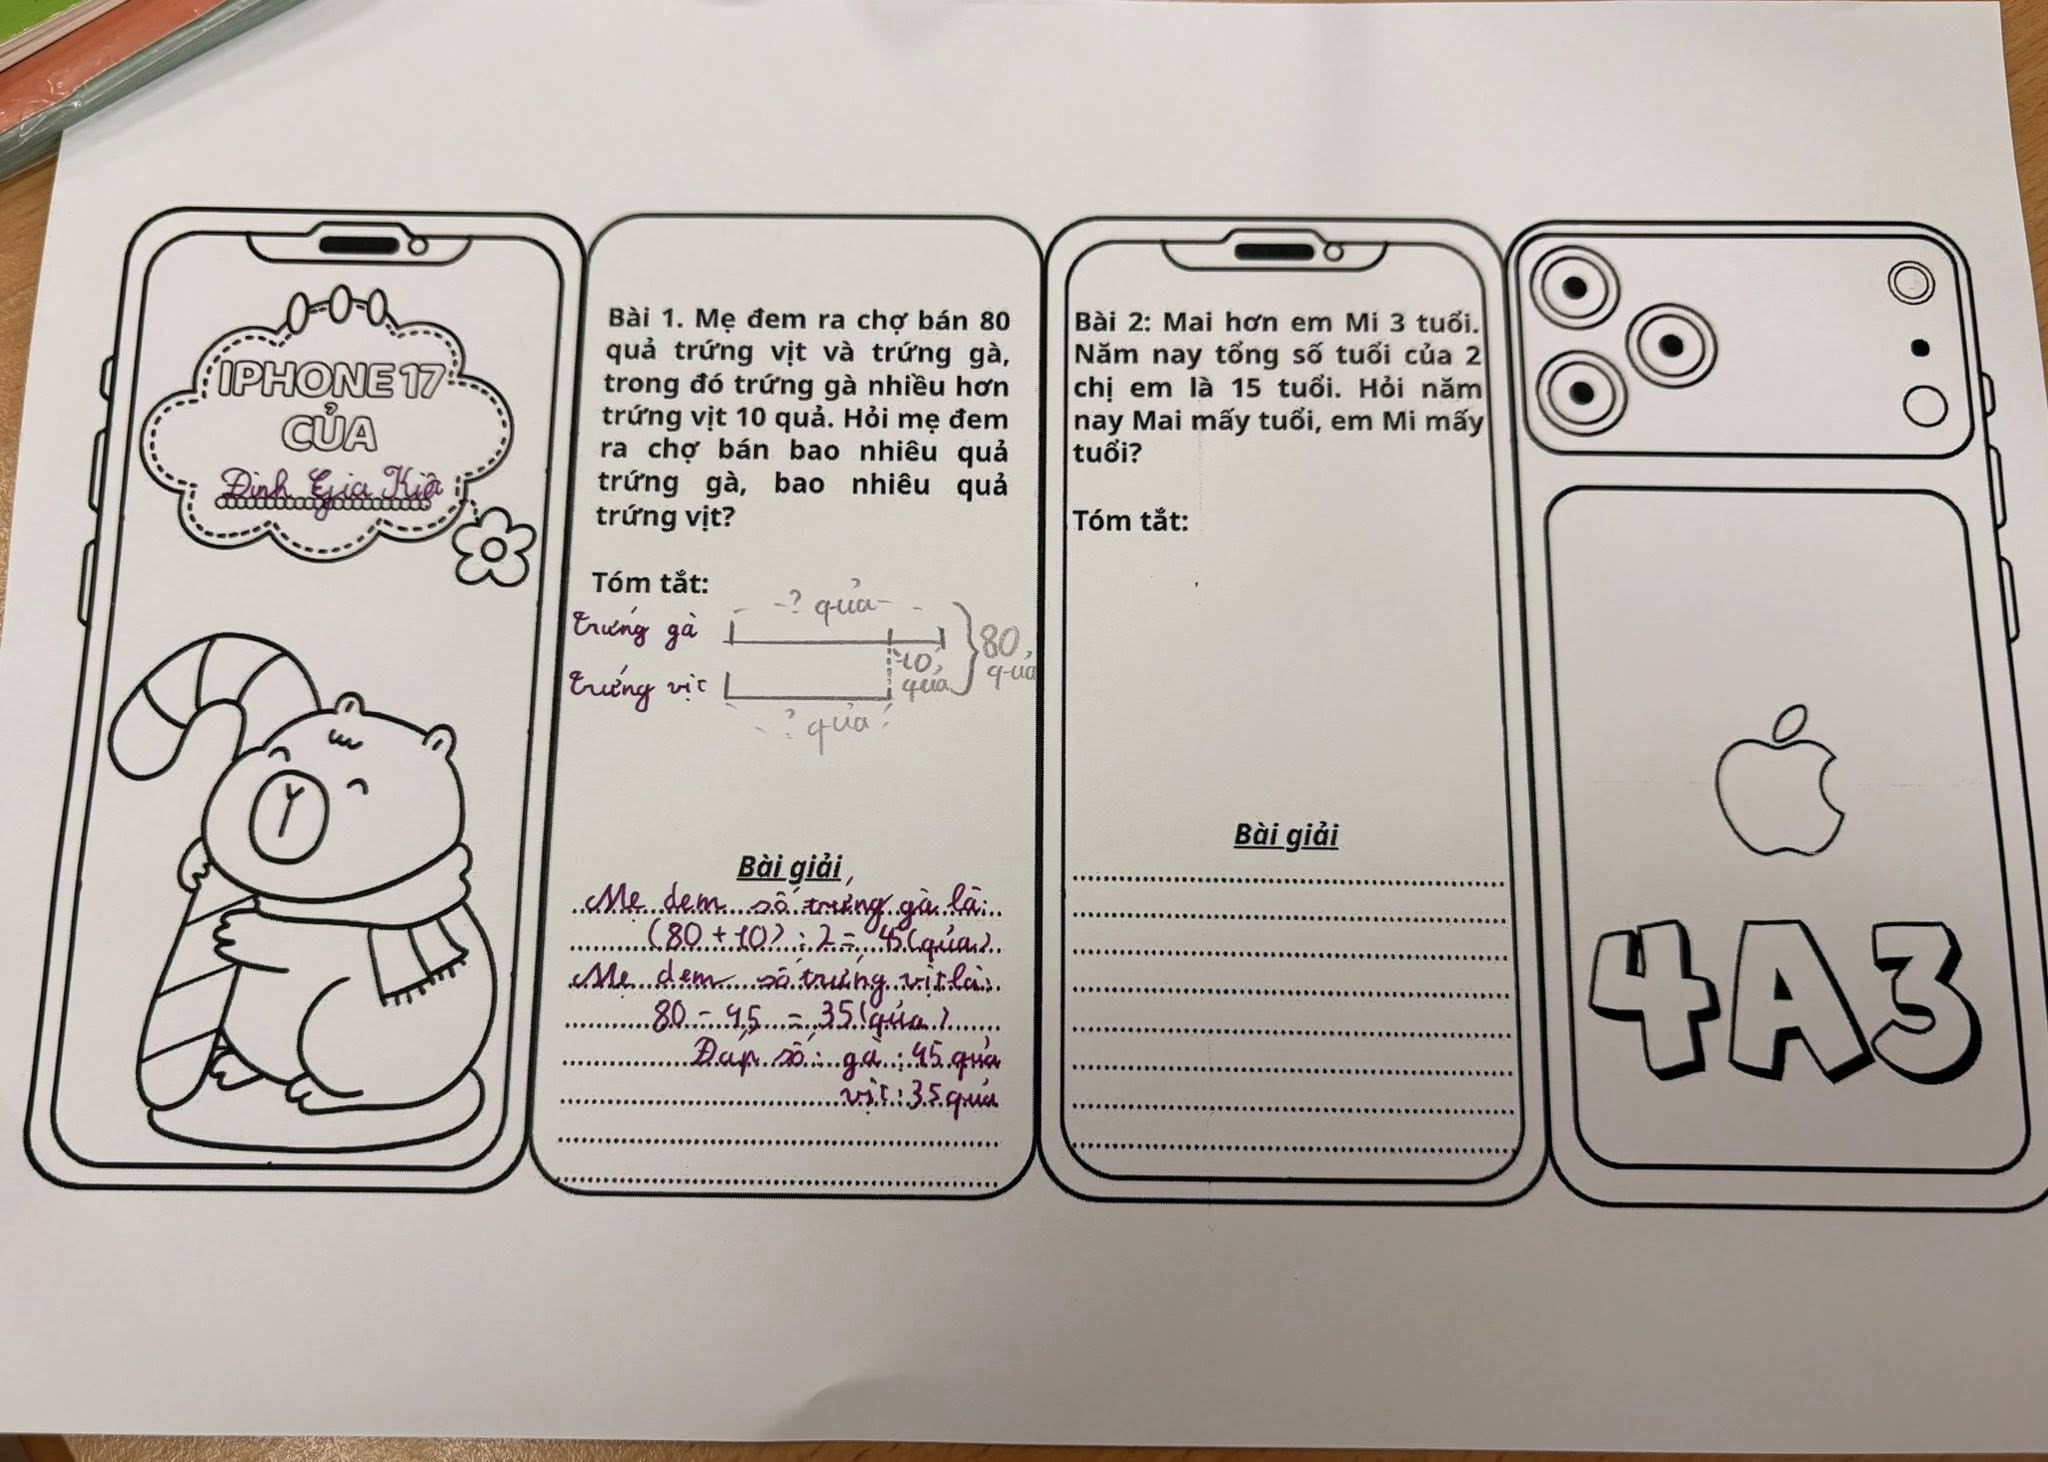 IPHONE 17
CỦA
Đinh Gia Kiệt
Bài 1. Mẹ đem ra chợ bán 80
quả trứng vịt và trứng gà,
trong đó trứng gà nhiều hơn
trứng vịt 10 quả. Hỏi mẹ đem
ra chợ bán bao nhiêu quả
trứng gà, bao nhiêu quả
trứng vịt?
Tóm tắt:
? quả
trứng gà
10 quả
80 quả
trứng vịt
? quả
Bài giải
Mẹ đem số trứng gà là:
(80 + 10) : 2 = 45 (quả)
Mẹ đem số trứng vịt là:
80 - 45 = 35 (quả)
Đáp số: gà: 45 quả
vịt: 35 quả
Bài 2: Mai hơn em Mi 3 tuổi.
Năm nay tổng số tuổi của 2
chị em là 15 tuổi. Hỏi năm
nay Mai mấy tuổi, em Mi mấy
tuổi?
Tóm tắt:
Bài giải
4A3